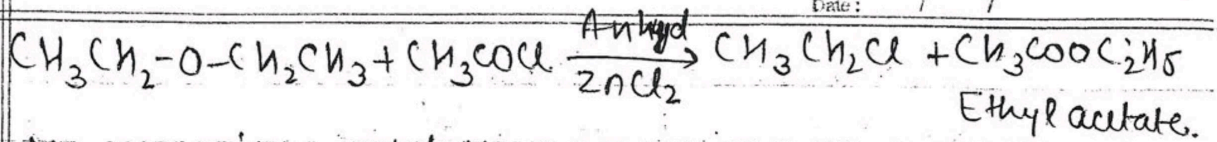 Date: / /
CH₃CH₂-O-CH₂CH₃ + CH₃COCl Anhyd ZnCl₂ → CH₃CH₂Cl + CH₃COOC₂H₅
Ethyl acetate.